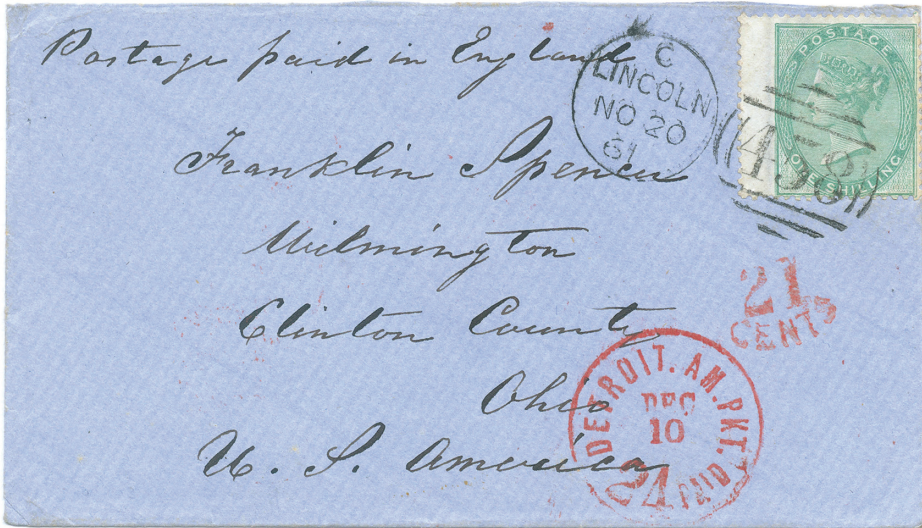 Postage paid in England
C
LINCOLN
NO 20
61
POSTAGE
ONE SHILLING
458
Franklin Spencer
Wilmington
Clinton County
Ohio
U. S. America
21
CENTS
DETROIT. AM. PKT.
DEC
10